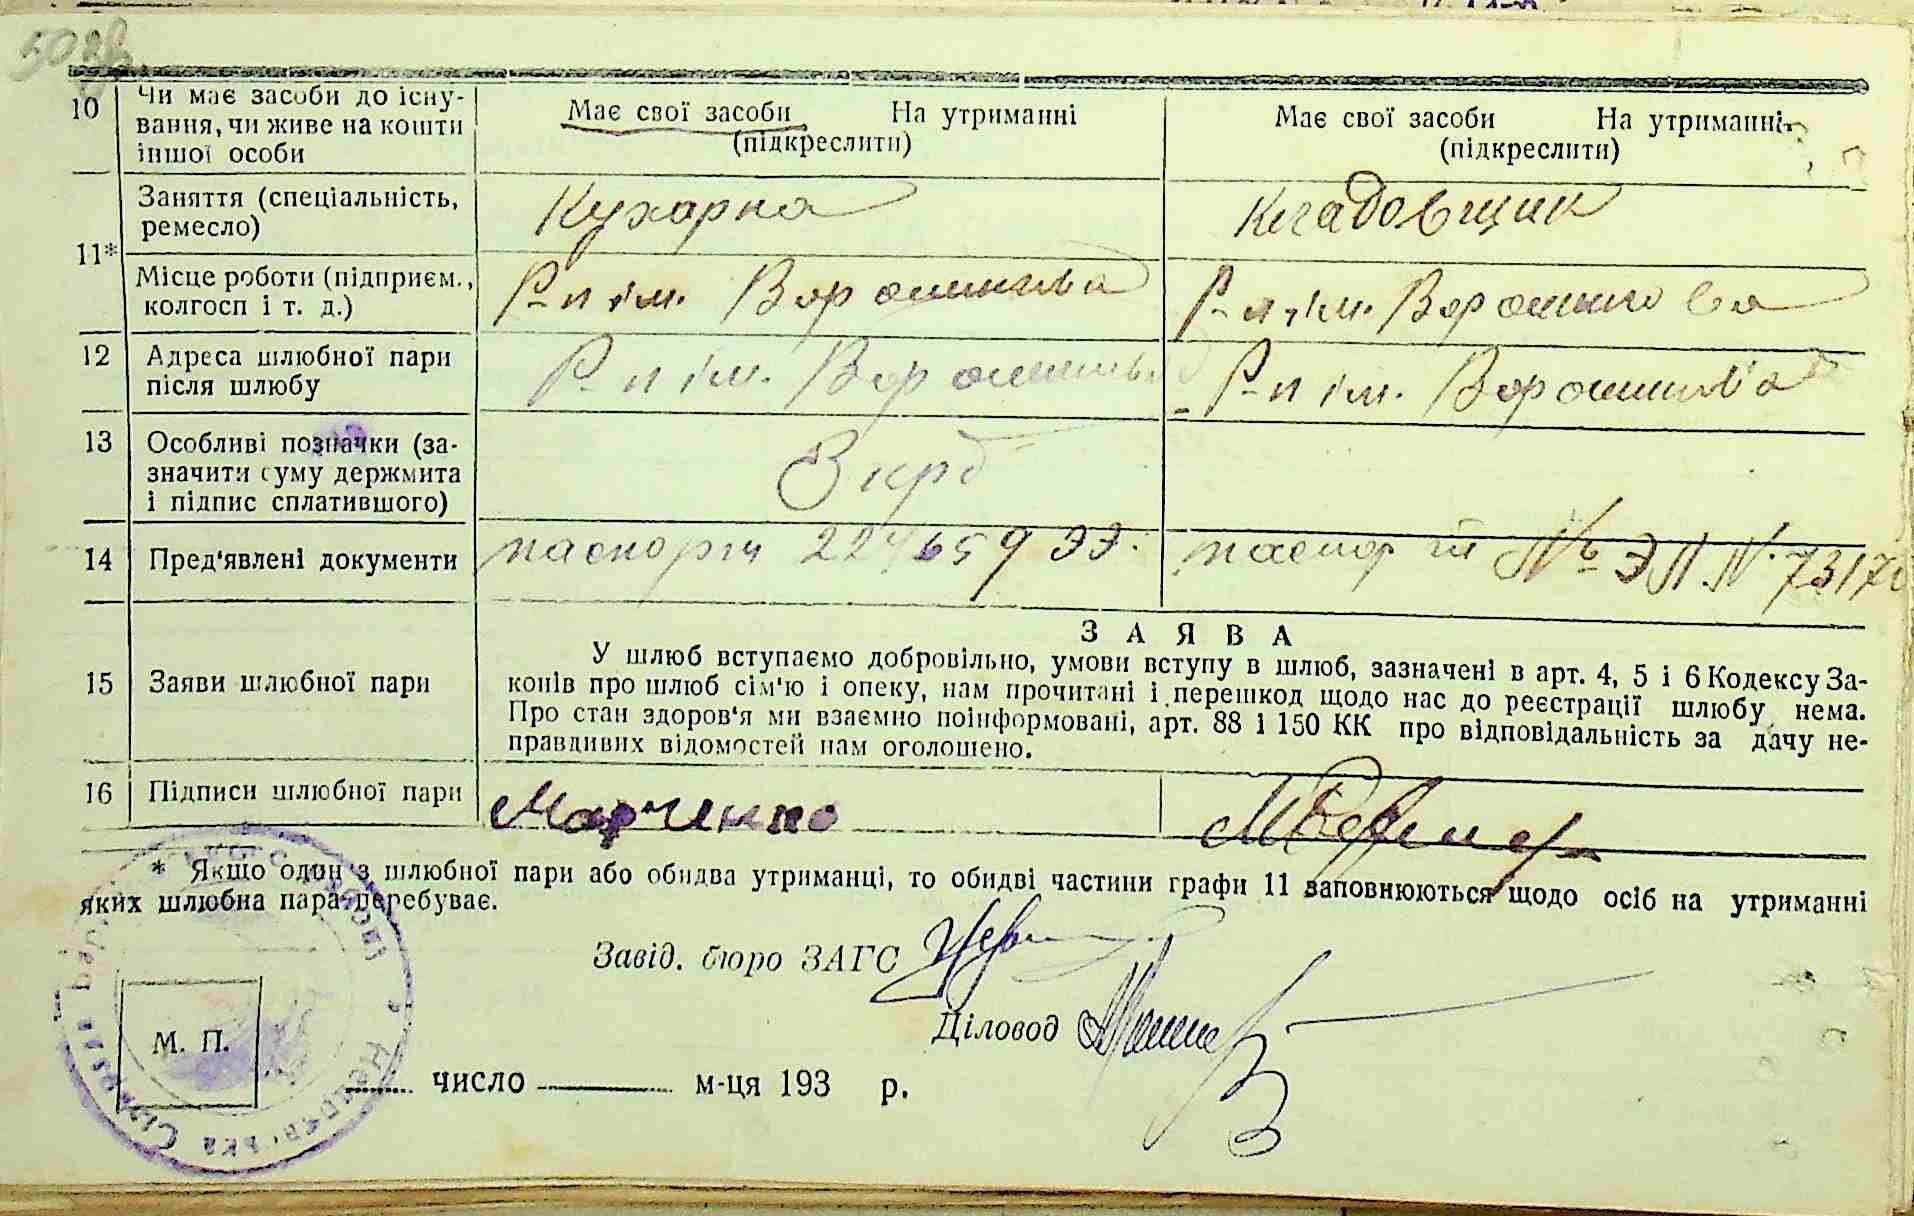 10
Чи має засоби до існу-
вання, чи живе на кошти
іншої особи
Має свої засоби На утриманні
(підкреслити)
Має свої засоби На утриманні
(підкреслити)
11*
Заняття (спеціальність,
ремесло)
Кухарка
Кладовщик
Місце роботи (підприєм.,
колгосп і т. д.)
Р-п ім. Ворошилова
Р-п ім. Ворошилова
12
Адреса шлюбної пари
після шлюбу
Р-п ім. Ворошилова
Р-п ім. Ворошилова
13
Особливі позначки (за-
значити суму держмита
і підпис сплатившого)
3 крб
14
Пред'явлені документи
паспорт 224659 ЭЭ.
паспорт № ЭП N. 73170
15
Заяви шлюбної пари
ЗАЯВА
У шлюб вступаємо добровільно, умови вступу в шлюб, зазначені в арт. 4, 5 і 6 Кодексу За-
конів про шлюб сім'ю і опеку, нам прочитані і перешкод щодо нас до реєстрації шлюбу нема.
Про стан здоров'я ми взаємно поінформовані, арт. 88 і 150 КК про відповідальність за дачу не-
правдивих відомостей нам оголошено.
16
Підписи шлюбної пари
Марченко
* Якщо один з шлюбної пари або обидва утриманці, то обидві частини графи 11 заповнюються щодо осіб на утриманні
яких шлюбна пара перебуває.
Завід. бюро ЗАГС
Діловод
М. П.
число м-ця 193 р.